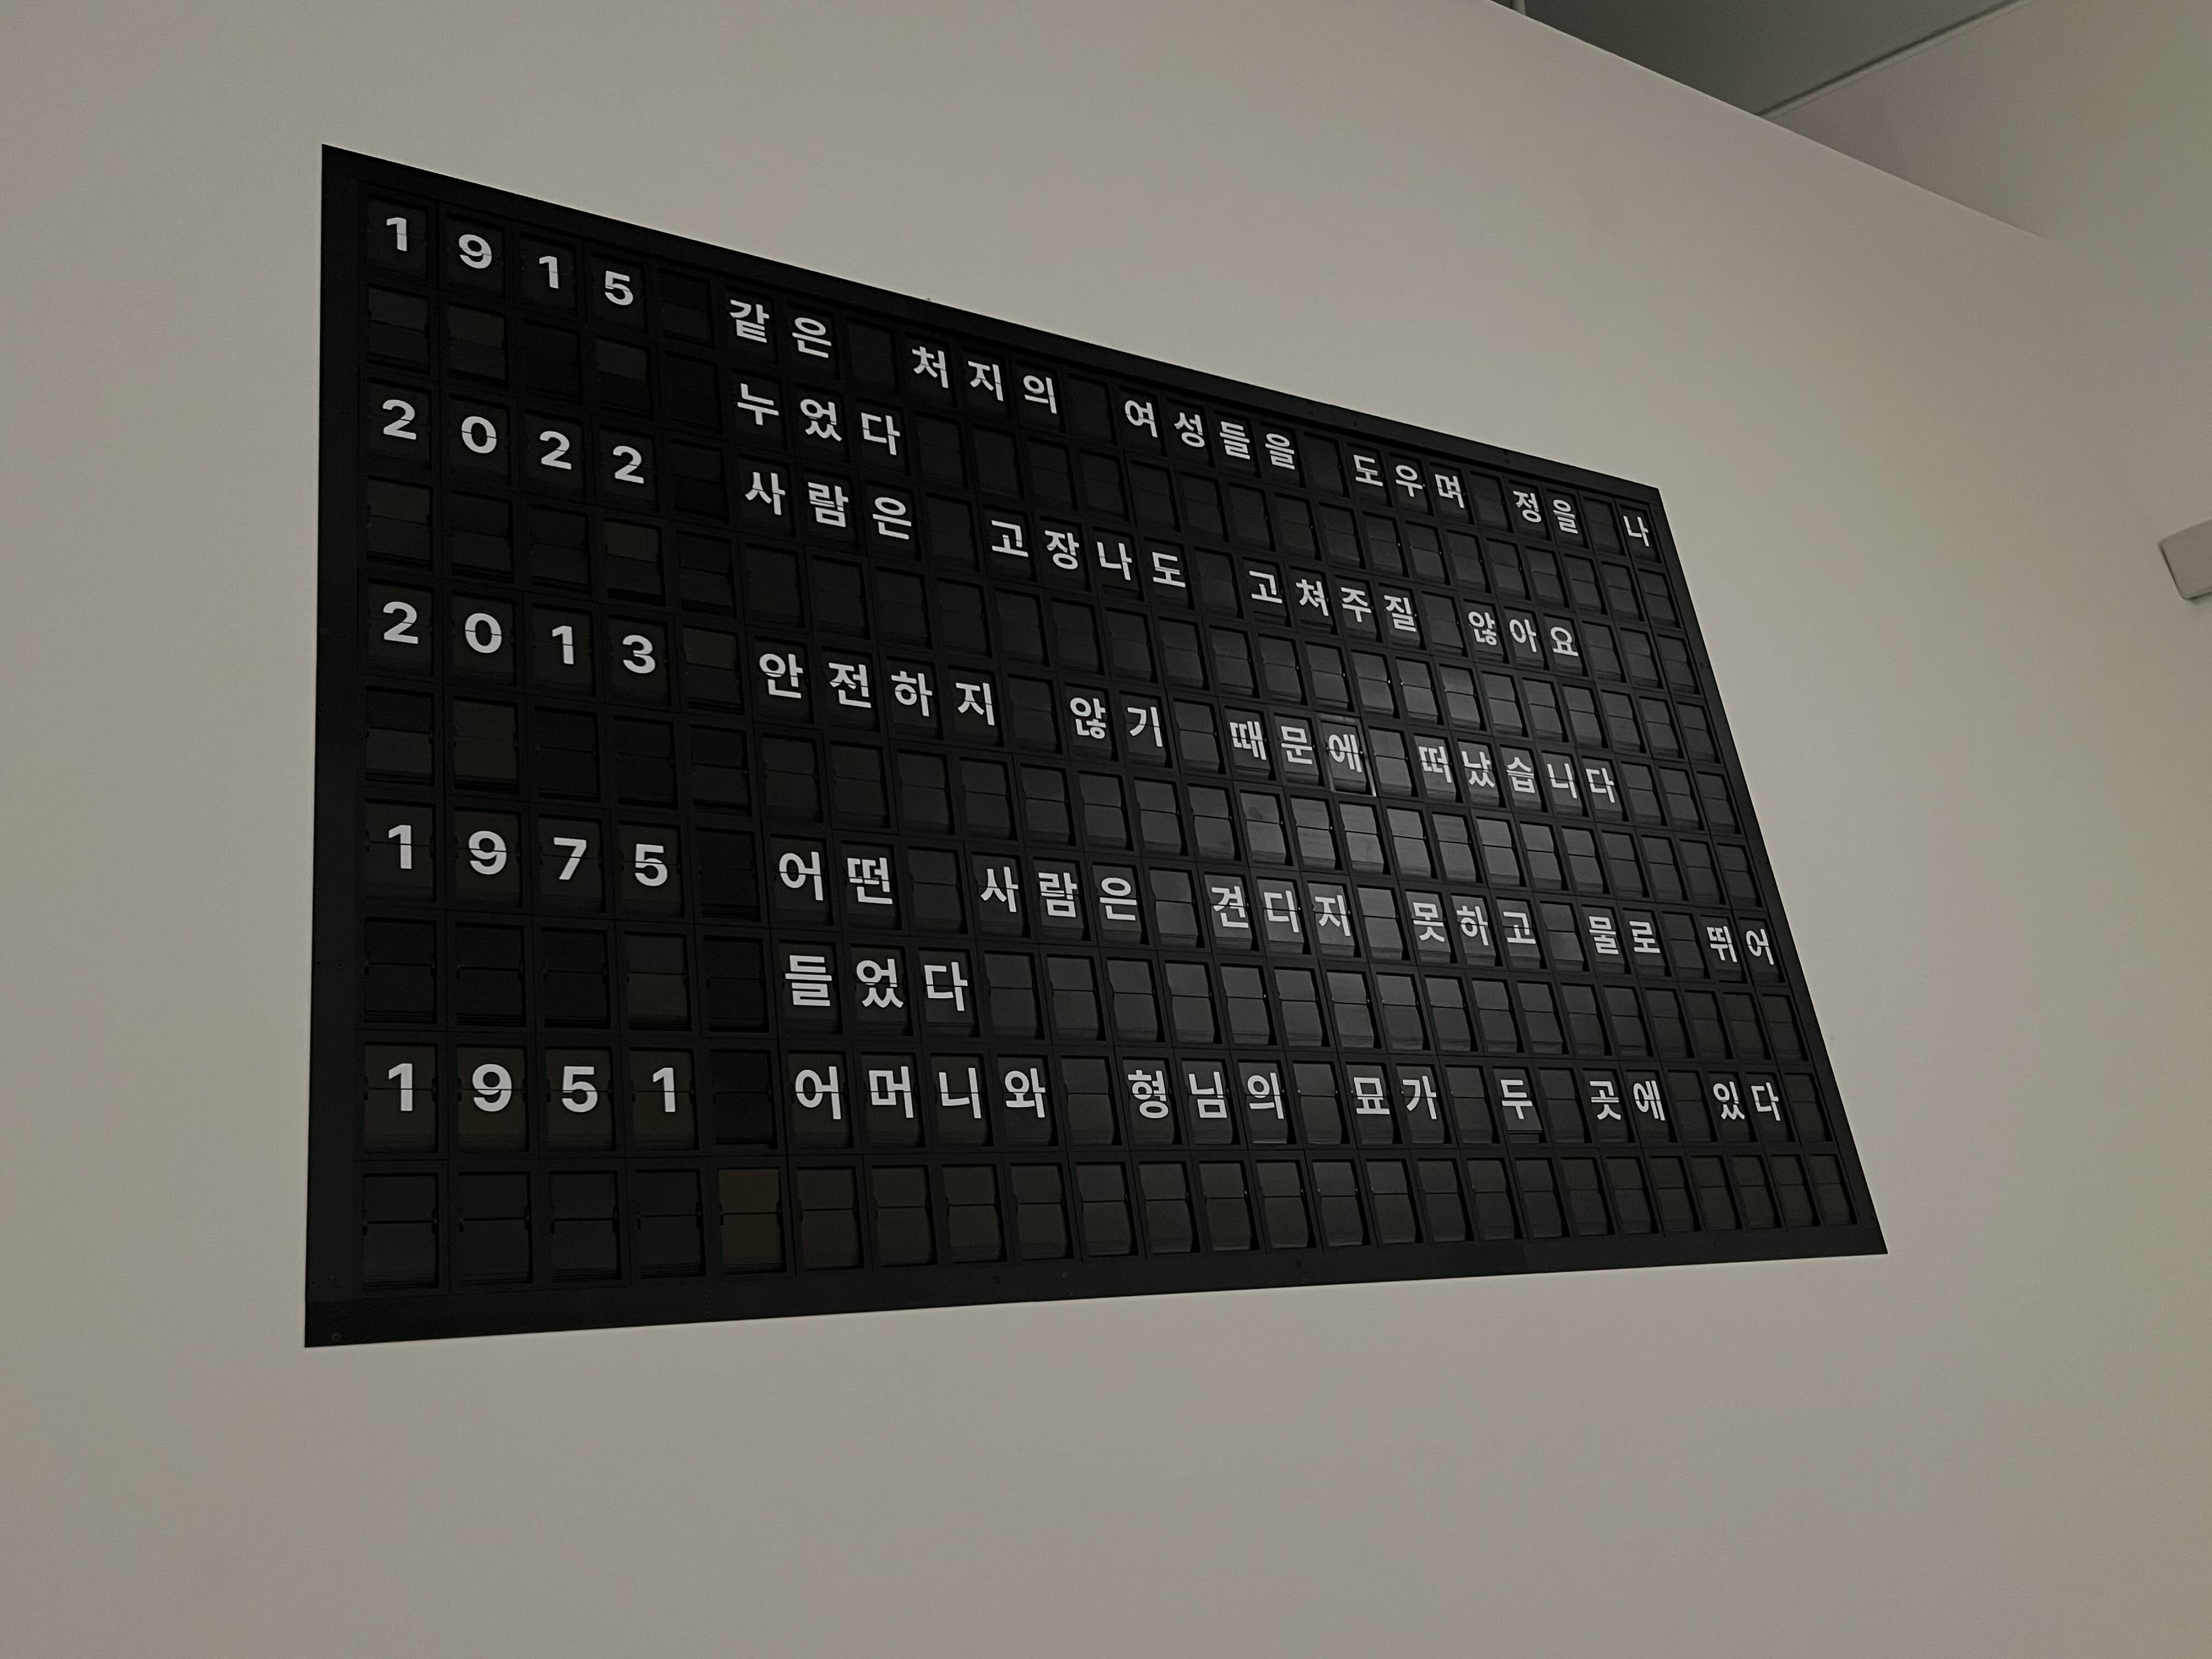 1915 같은 처지의 여성들을 도우며 정을 나
누었다
2022 사람은 고장나도 고쳐주질 않아요
2013 안전하지 않기 때문에 떠났습니다
1975 어떤 사람은 견디지 못하고 물로 뛰어
들었다
1951 어머니와 형님의 묘가 두 곳에 있다